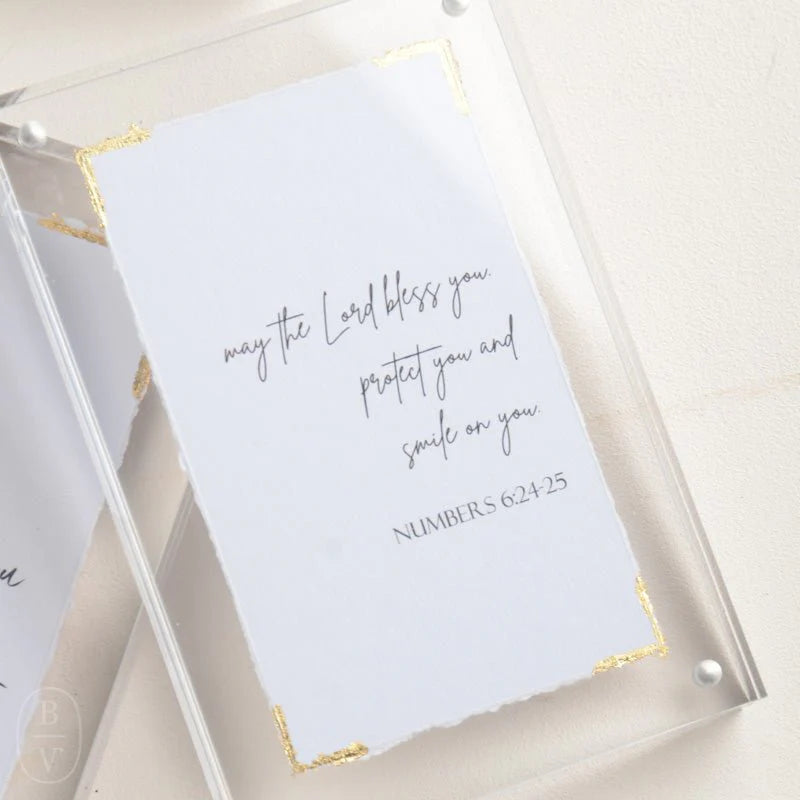 may the Lord bless you.
protect you and
smile on you.
NUMBERS 6:24-25
B
V